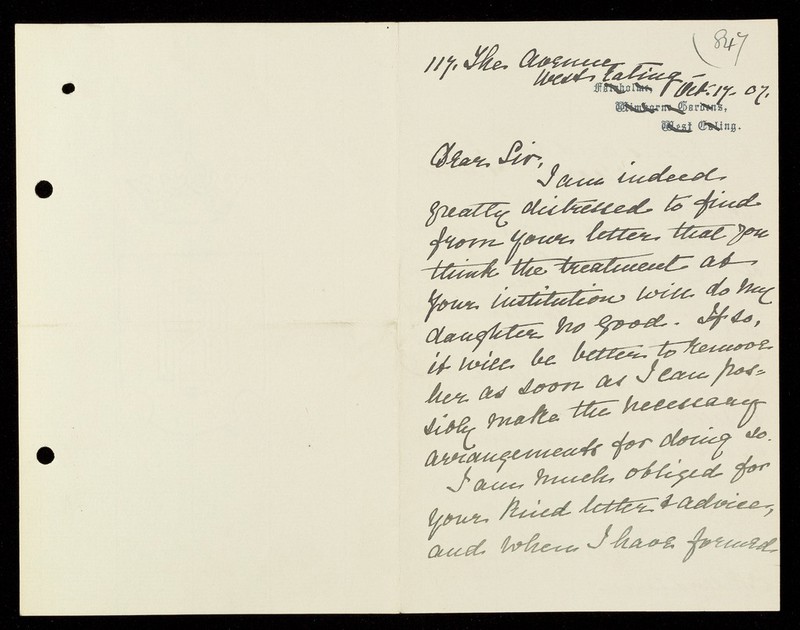 847
117. The Avenue
West Ealing -
Oct. 17. 07.
Fairholme,
Wimborne Gardens,
West Ealing.
Dear Sir,
I am indeed
greatly distressed to find
from your letter that you
think the treatment at
your institution will do my
daughter no good. If so,
it will be better to remove
her as soon as I can pos=
sibly make the necessary
arrangements for doing so.
I am much obliged for
your kind letter & advice,
and when I have formed